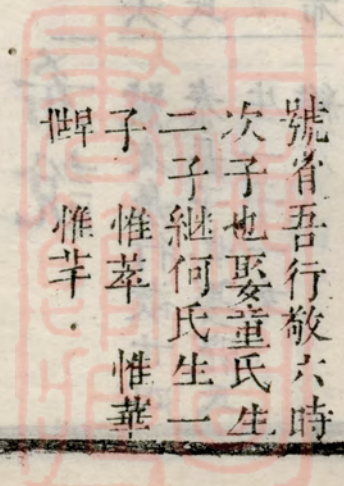 號省吾行敬六時
次子也娶童氏生
二子繼何氏生一
子 惟萃 惟華
惟芊